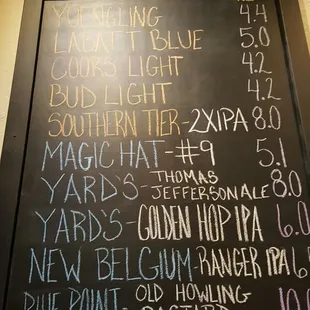 YUENGLING 4.4
LABATT BLUE 5.0
COORS LIGHT 4.2
BUD LIGHT 4.2
SOUTHERN TIER-2XIPA 8.0
MAGIC HAT-#9 5.1
YARD'S-THOMAS JEFFERSON ALE 8.0
YARD'S-GOLDEN HOP IPA 6.0
NEW BELGIUM-RANGER IPA 6
BLUE POINT OLD HOWLING 10.0
BASTARD